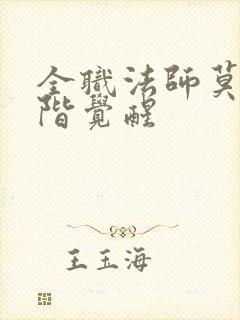 全職法師莫
階覺醒
王玉海